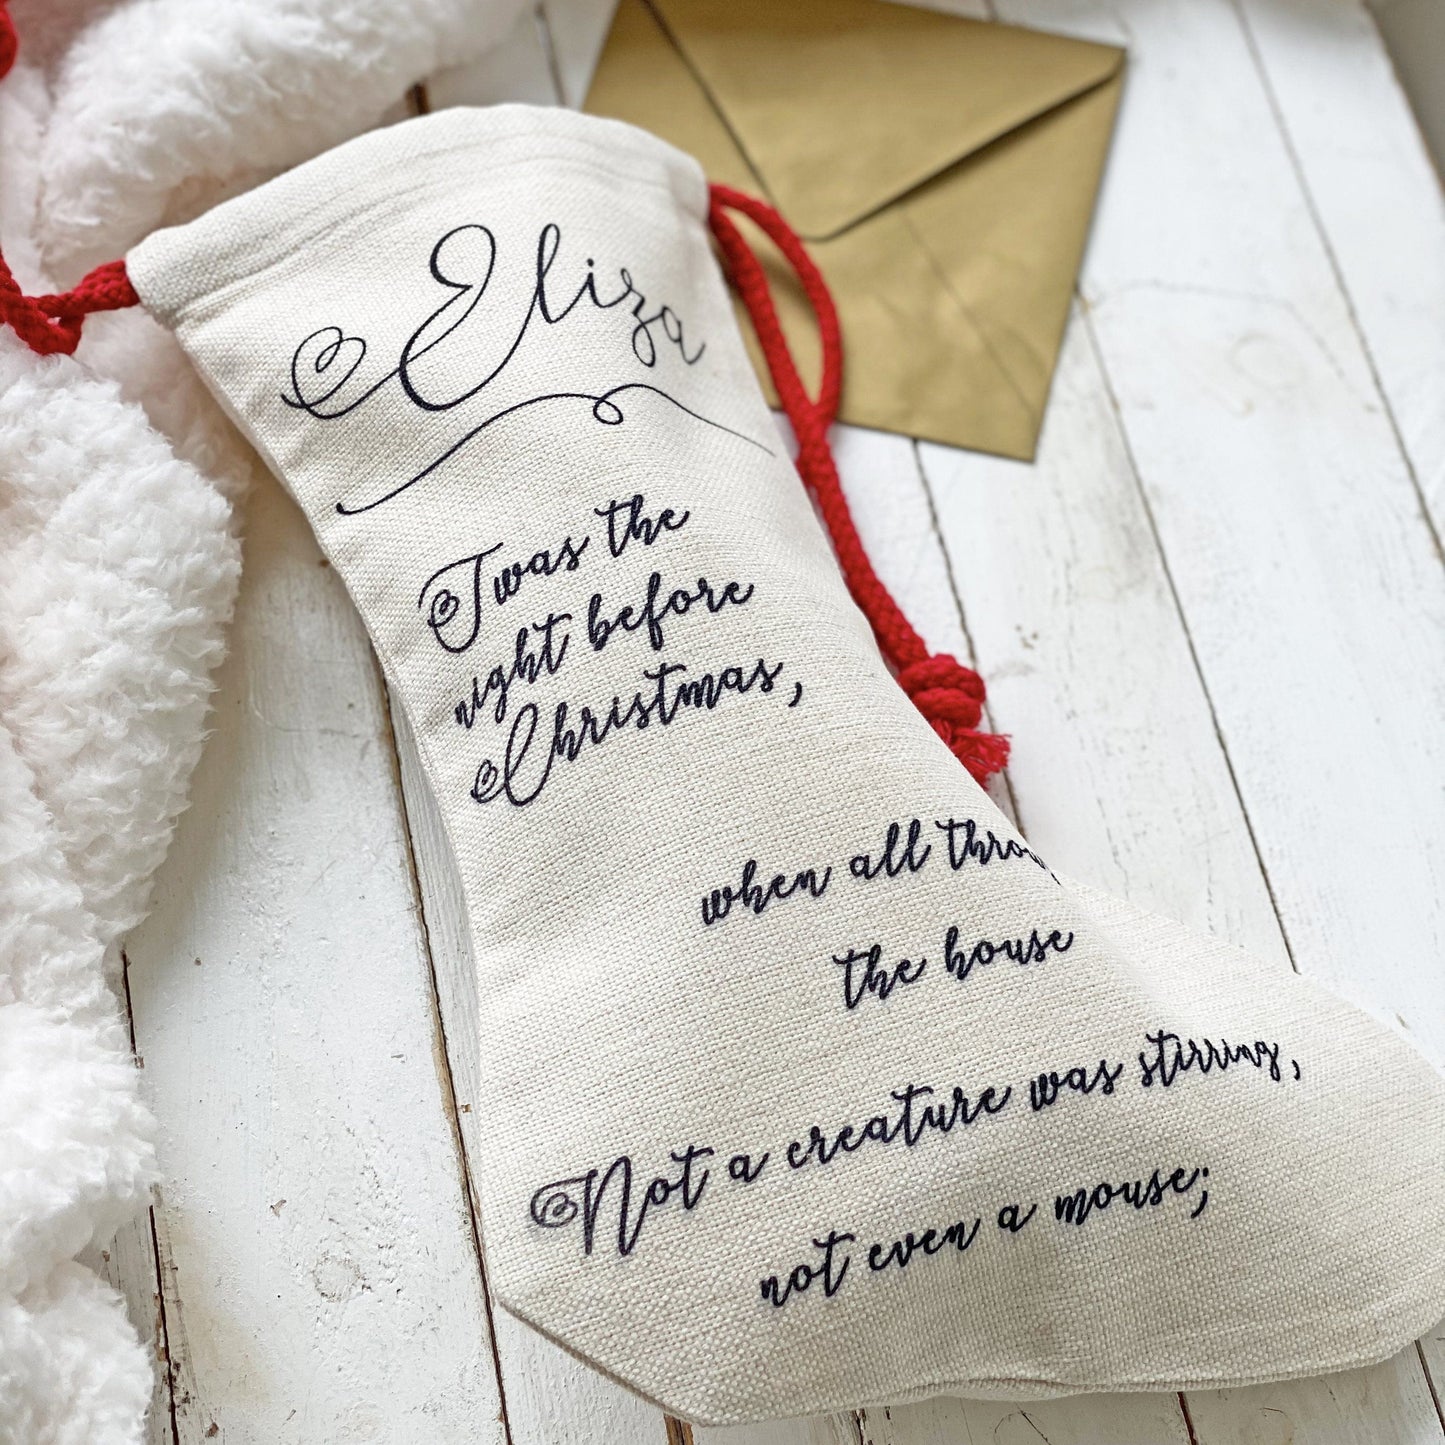 Eliza
Twas the
night before
Christmas,
when all
the house
Not a creature was stirring,
not even a mouse;